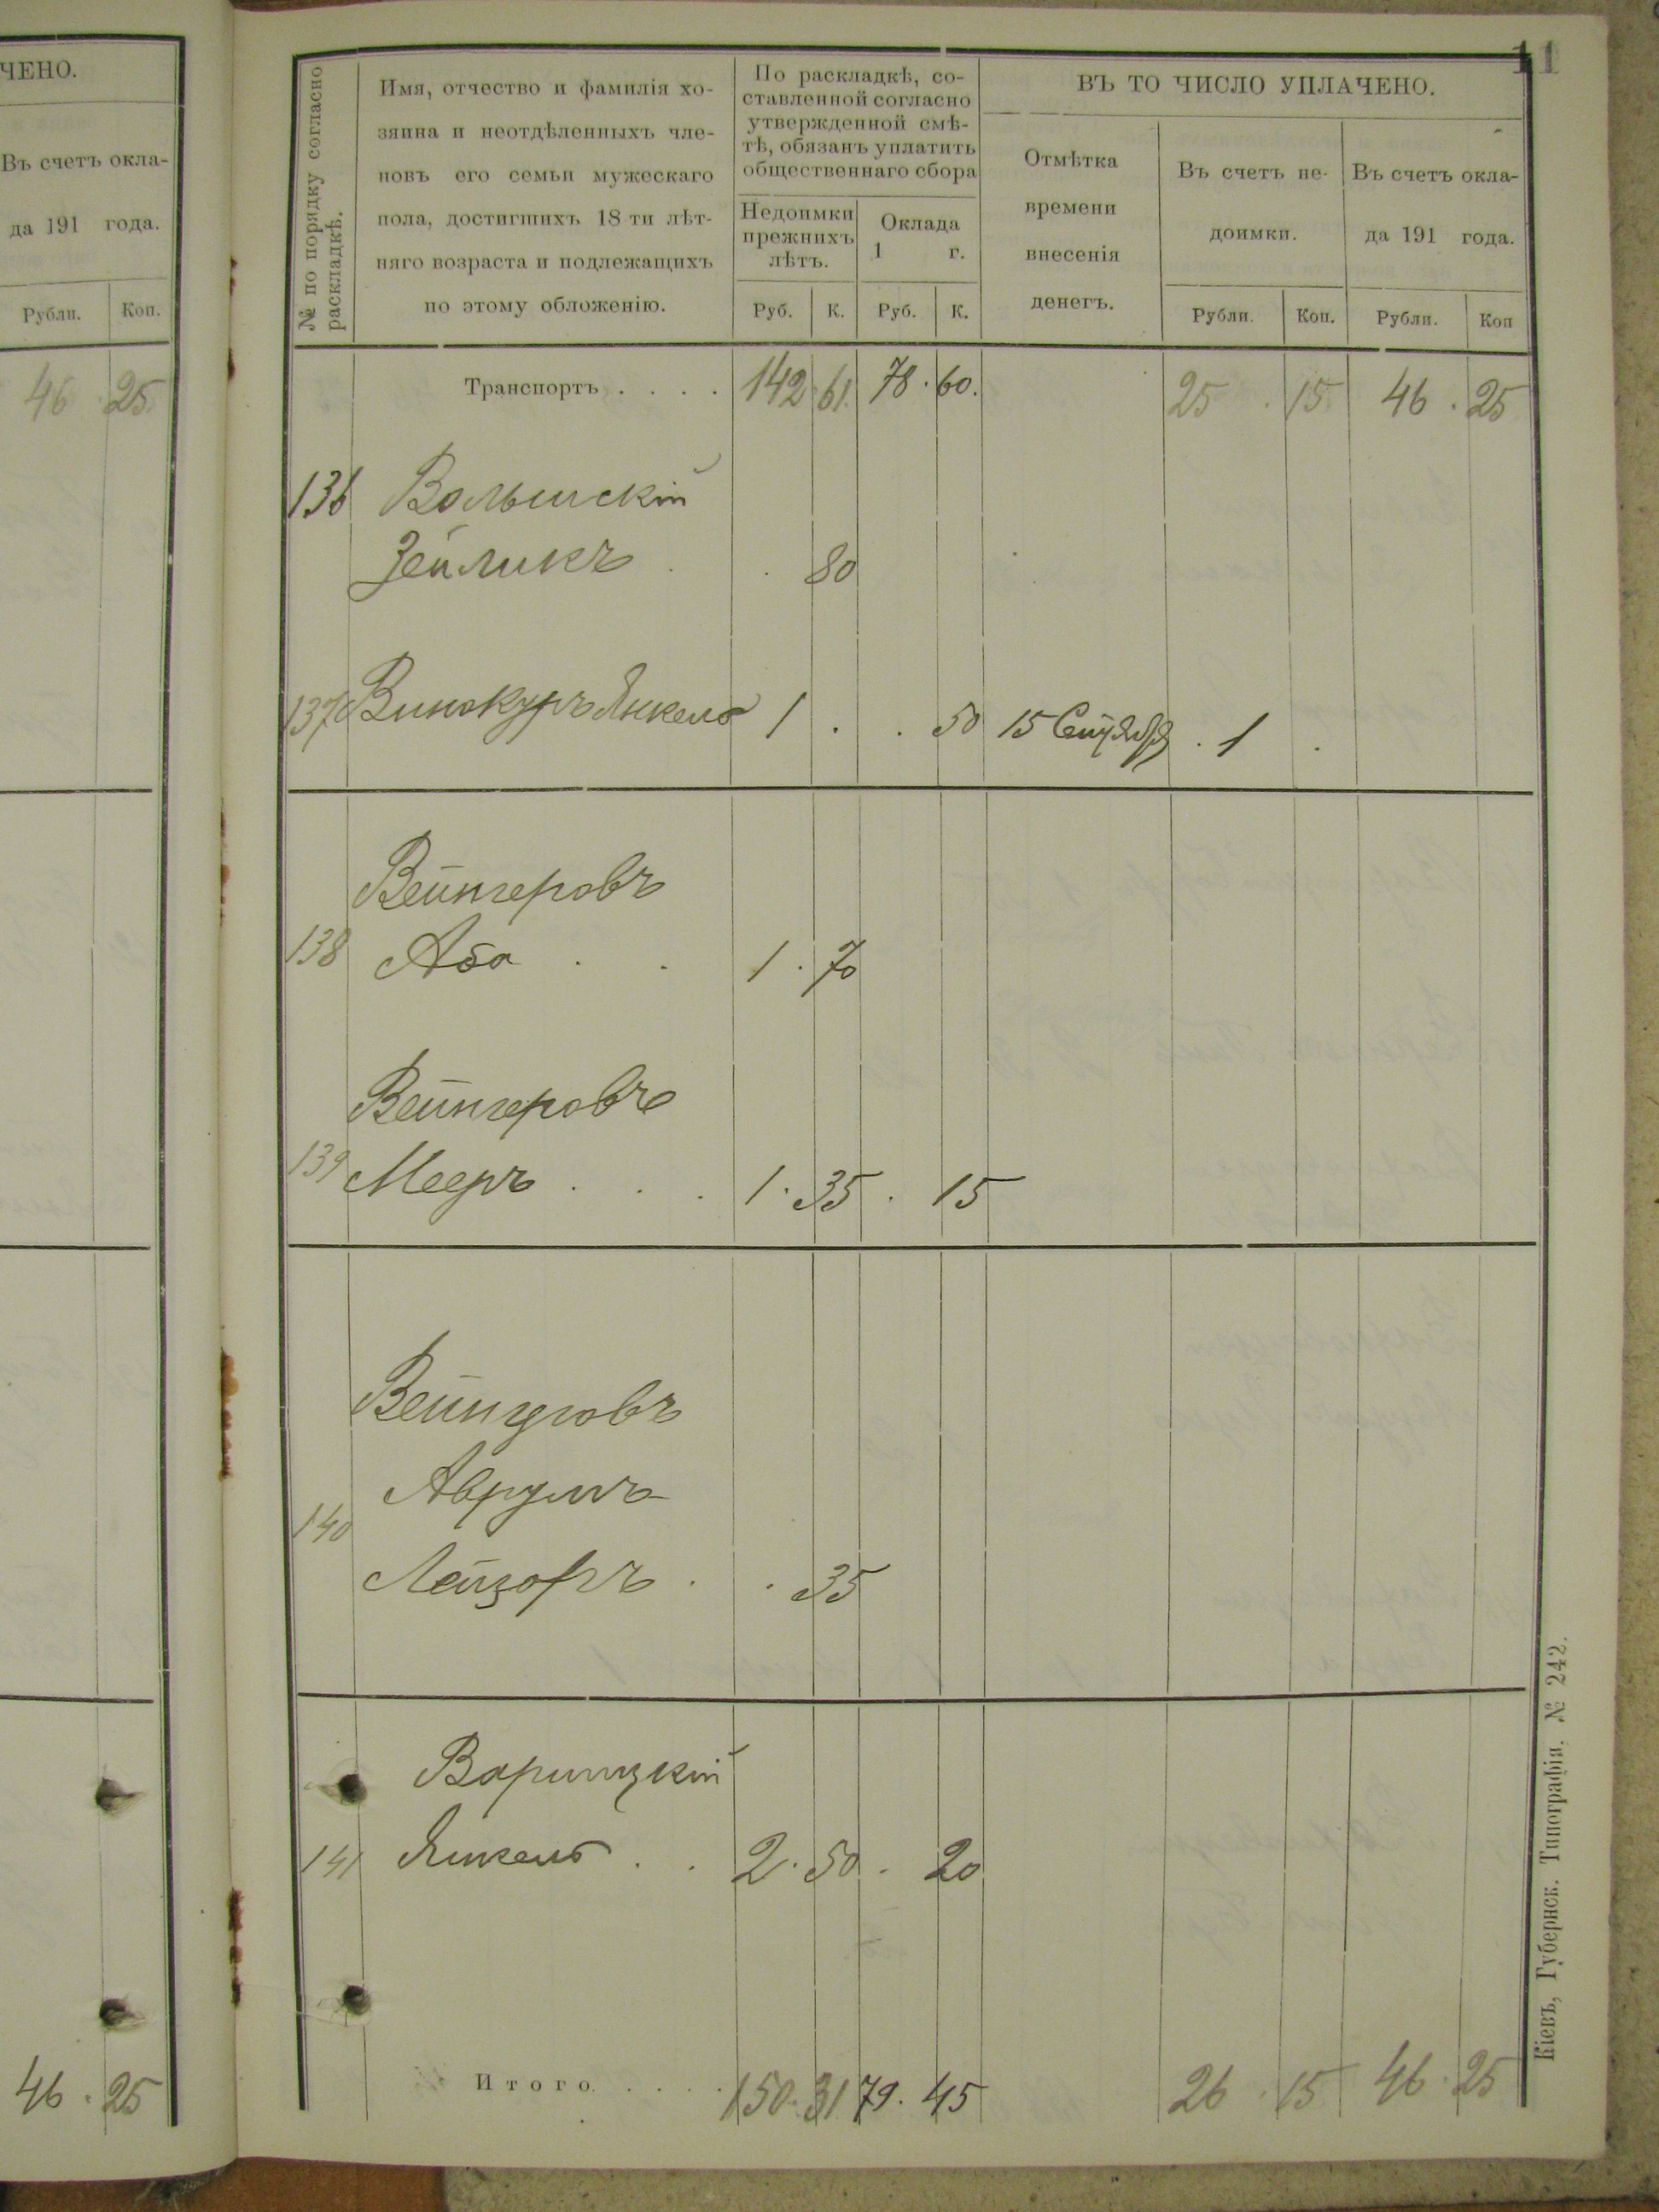 ЧЕНО.
Въ счетъ окла-
да 191 года.
Рубли. Коп.
46 25
46 . 25
11
№ по порядку согласно
раскладкѣ.
Имя, отчество и фамилія хо-
зяина и неотдѣленныхъ чле-
новъ его семьи мужескаго
пола, достигшихъ 18 ти лѣт-
няго возраста и подлежащихъ
по этому обложенію.
По раскладкѣ, со-
ставленной согласно
утвержденной смѣ-
тѣ, обязанъ уплатить
общественнаго сбора
Недоимки
прежнихъ
лѣтъ.
Оклада
1 г.
Руб. К. Руб. К.
ВЪ ТО ЧИСЛО УПЛАЧЕНО.
Отмѣтка
времени
внесенія
денегъ.
Въ счетъ не-
доимки.
Въ счетъ окла-
да 191 года.
Рубли. Коп. Рубли. Коп
Транспортъ . . . . 142 61. 78 . 60. 25 . 15 46 . 25
136 Волынскій
Зейликъ . . 80
137 Винокуръ Янкель 1 . . 50 15 Сентября . 1 .
Вейнгеровъ
138 Аба . . 1 . 70
Вейнгеровъ
139 Мееръ . . . 1 . 35 . 15
Вейнгеровъ
Аврумъ
140
Лейзоръ . . 35
Варницкій
141 Янкель . . 2 . 50 . 20
Итого . . . . 150 . 31 79 . 45 26 . 15 46 . 25
Кіевъ, Губернск. Типографія, № 242.